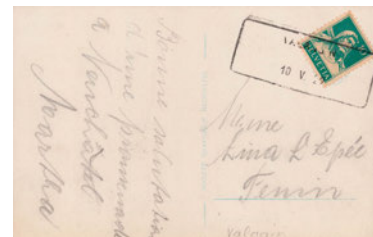 Bonne salutation
d'une promenade
a Neuchâtel
Martha
HELVETIA
10 V.
Mme
Lina L Epée
Fenin
Valangin